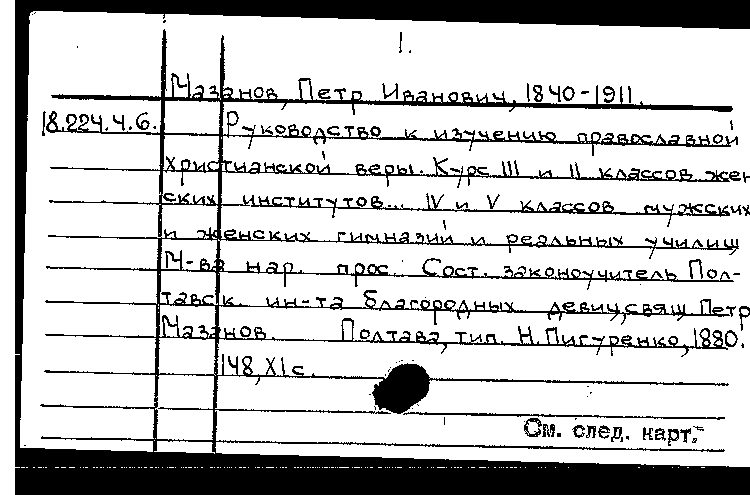 1.
Мазанов, Петр Иванович, 1840-1911.
18.224.4.6. Руководство к изучению православной
христианской веры. Курс III и II классов жен
ских институтов... IV и V классов мужских
и женских гимназий и реальных училищ
М-ва нар. прос. Сост. законоучитель Пол-
тавск. ин-та благородных девиц, свящ. Петр
Мазанов. Полтава, тип. Н. Пигуренко, 1880.
148, XI с.
См. след. карт.